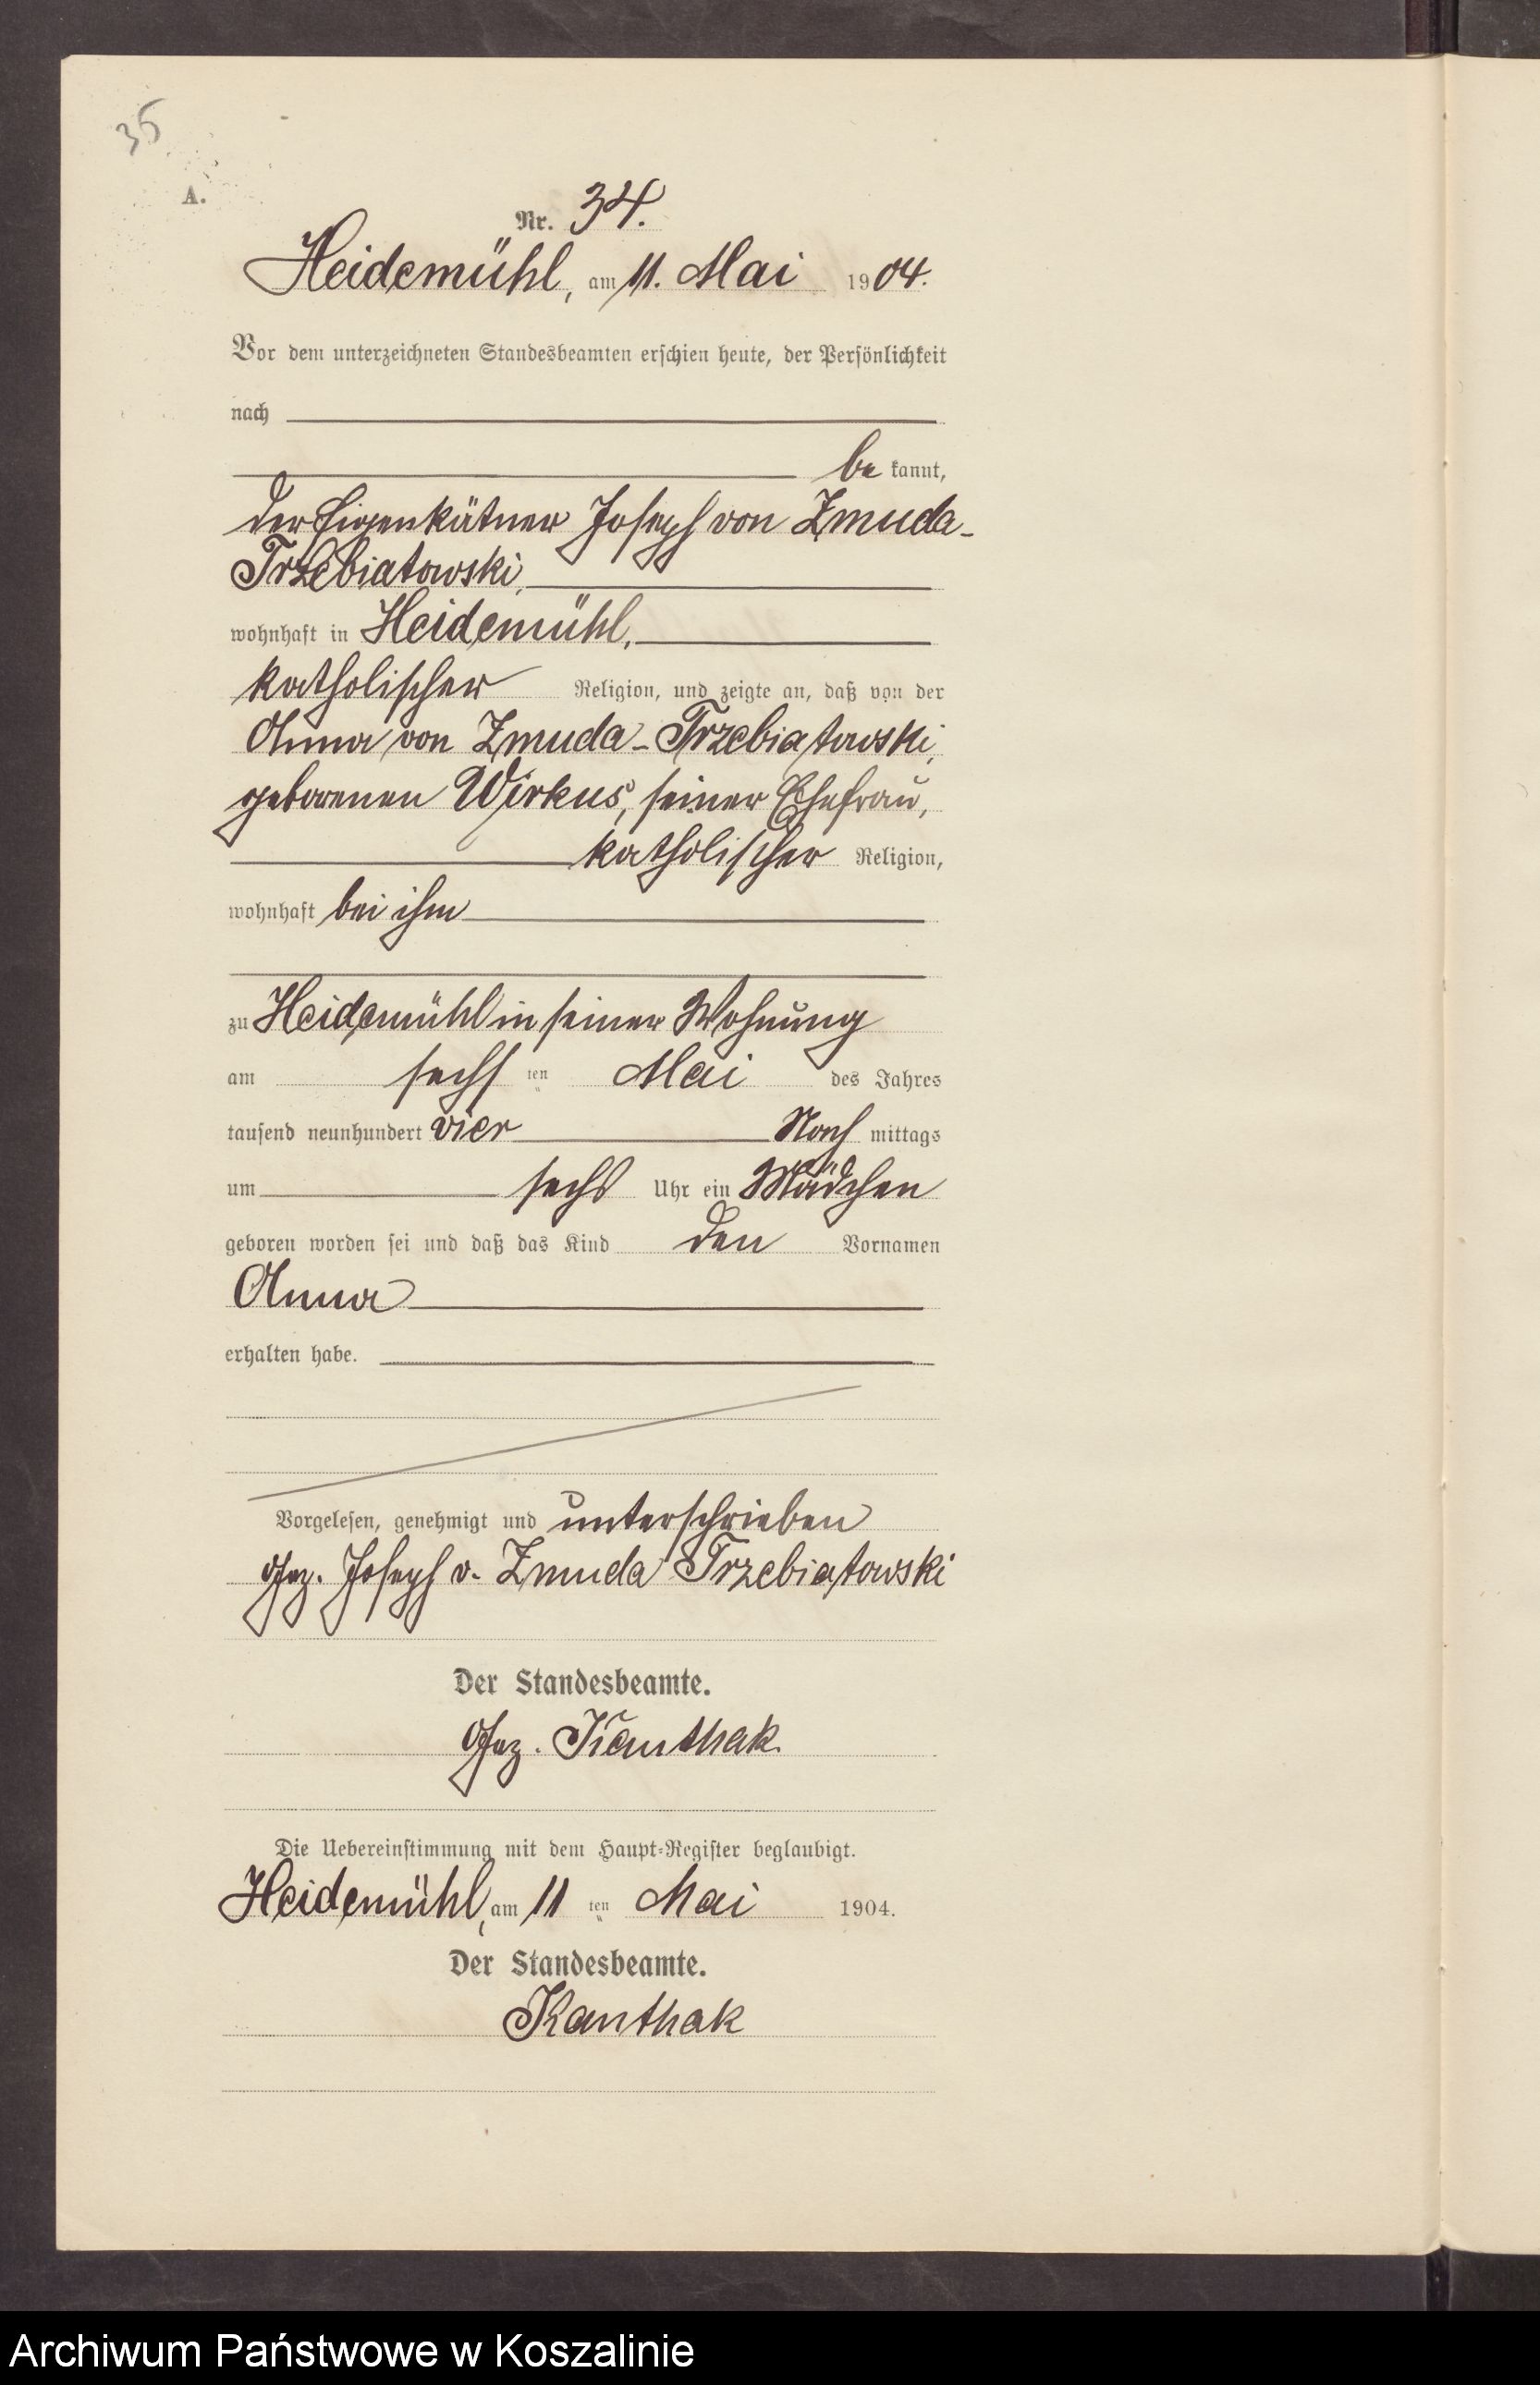 35
A.
Nr. 34.
Heidemühl, am 11. Mai 1904.
Vor dem unterzeichneten Standesbeamten erschien heute, der Persönlichkeit
nach
be kannt,
der Eigenkätner Joseph von Zmuda-
Trzebiatowski,
wohnhaft in Heidemühl,
katholischer Religion, und zeigte an, daß von der
Anna von Zmuda-Trzebiatowski,
geborenen Wirkus, seiner Ehefrau,
katholischer Religion,
wohnhaft bei ihm
zu Heidemühl in seiner Wohnung
am sechs ten Mai des Jahres
tausend neunhundert vier Nach mittags
um sechs Uhr ein Mädchen
geboren worden sei und daß das Kind den Vornamen
Anna
erhalten habe.
Vorgelesen, genehmigt und unterschrieben
Gez. Joseph v. Zmuda Trzebiatowski
Der Standesbeamte.
Gez. Kanthak.
Die Uebereinstimmung mit dem Haupt-Register beglaubigt.
Heidemühl, am 11 ten Mai 1904.
Der Standesbeamte.
Kanthak
Archiwum Państwowe w Koszalinie